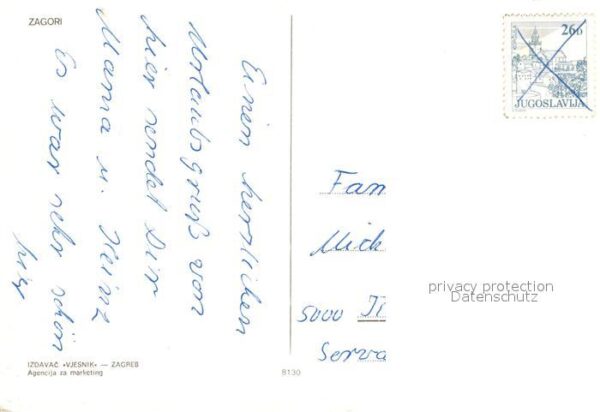 ZAGORI
Einen herzlichen
Urlaubsgruß von
hier sendet Dir
Mama u. Heinz
Es war sehr schön
hier
26D
JUGOSLAVIJA
Fam
Mich
5000
Serva
privacy protection
Datenschutz
IZDAVAČ »VJESNIK« — ZAGREB
Agencija za marketing
8130